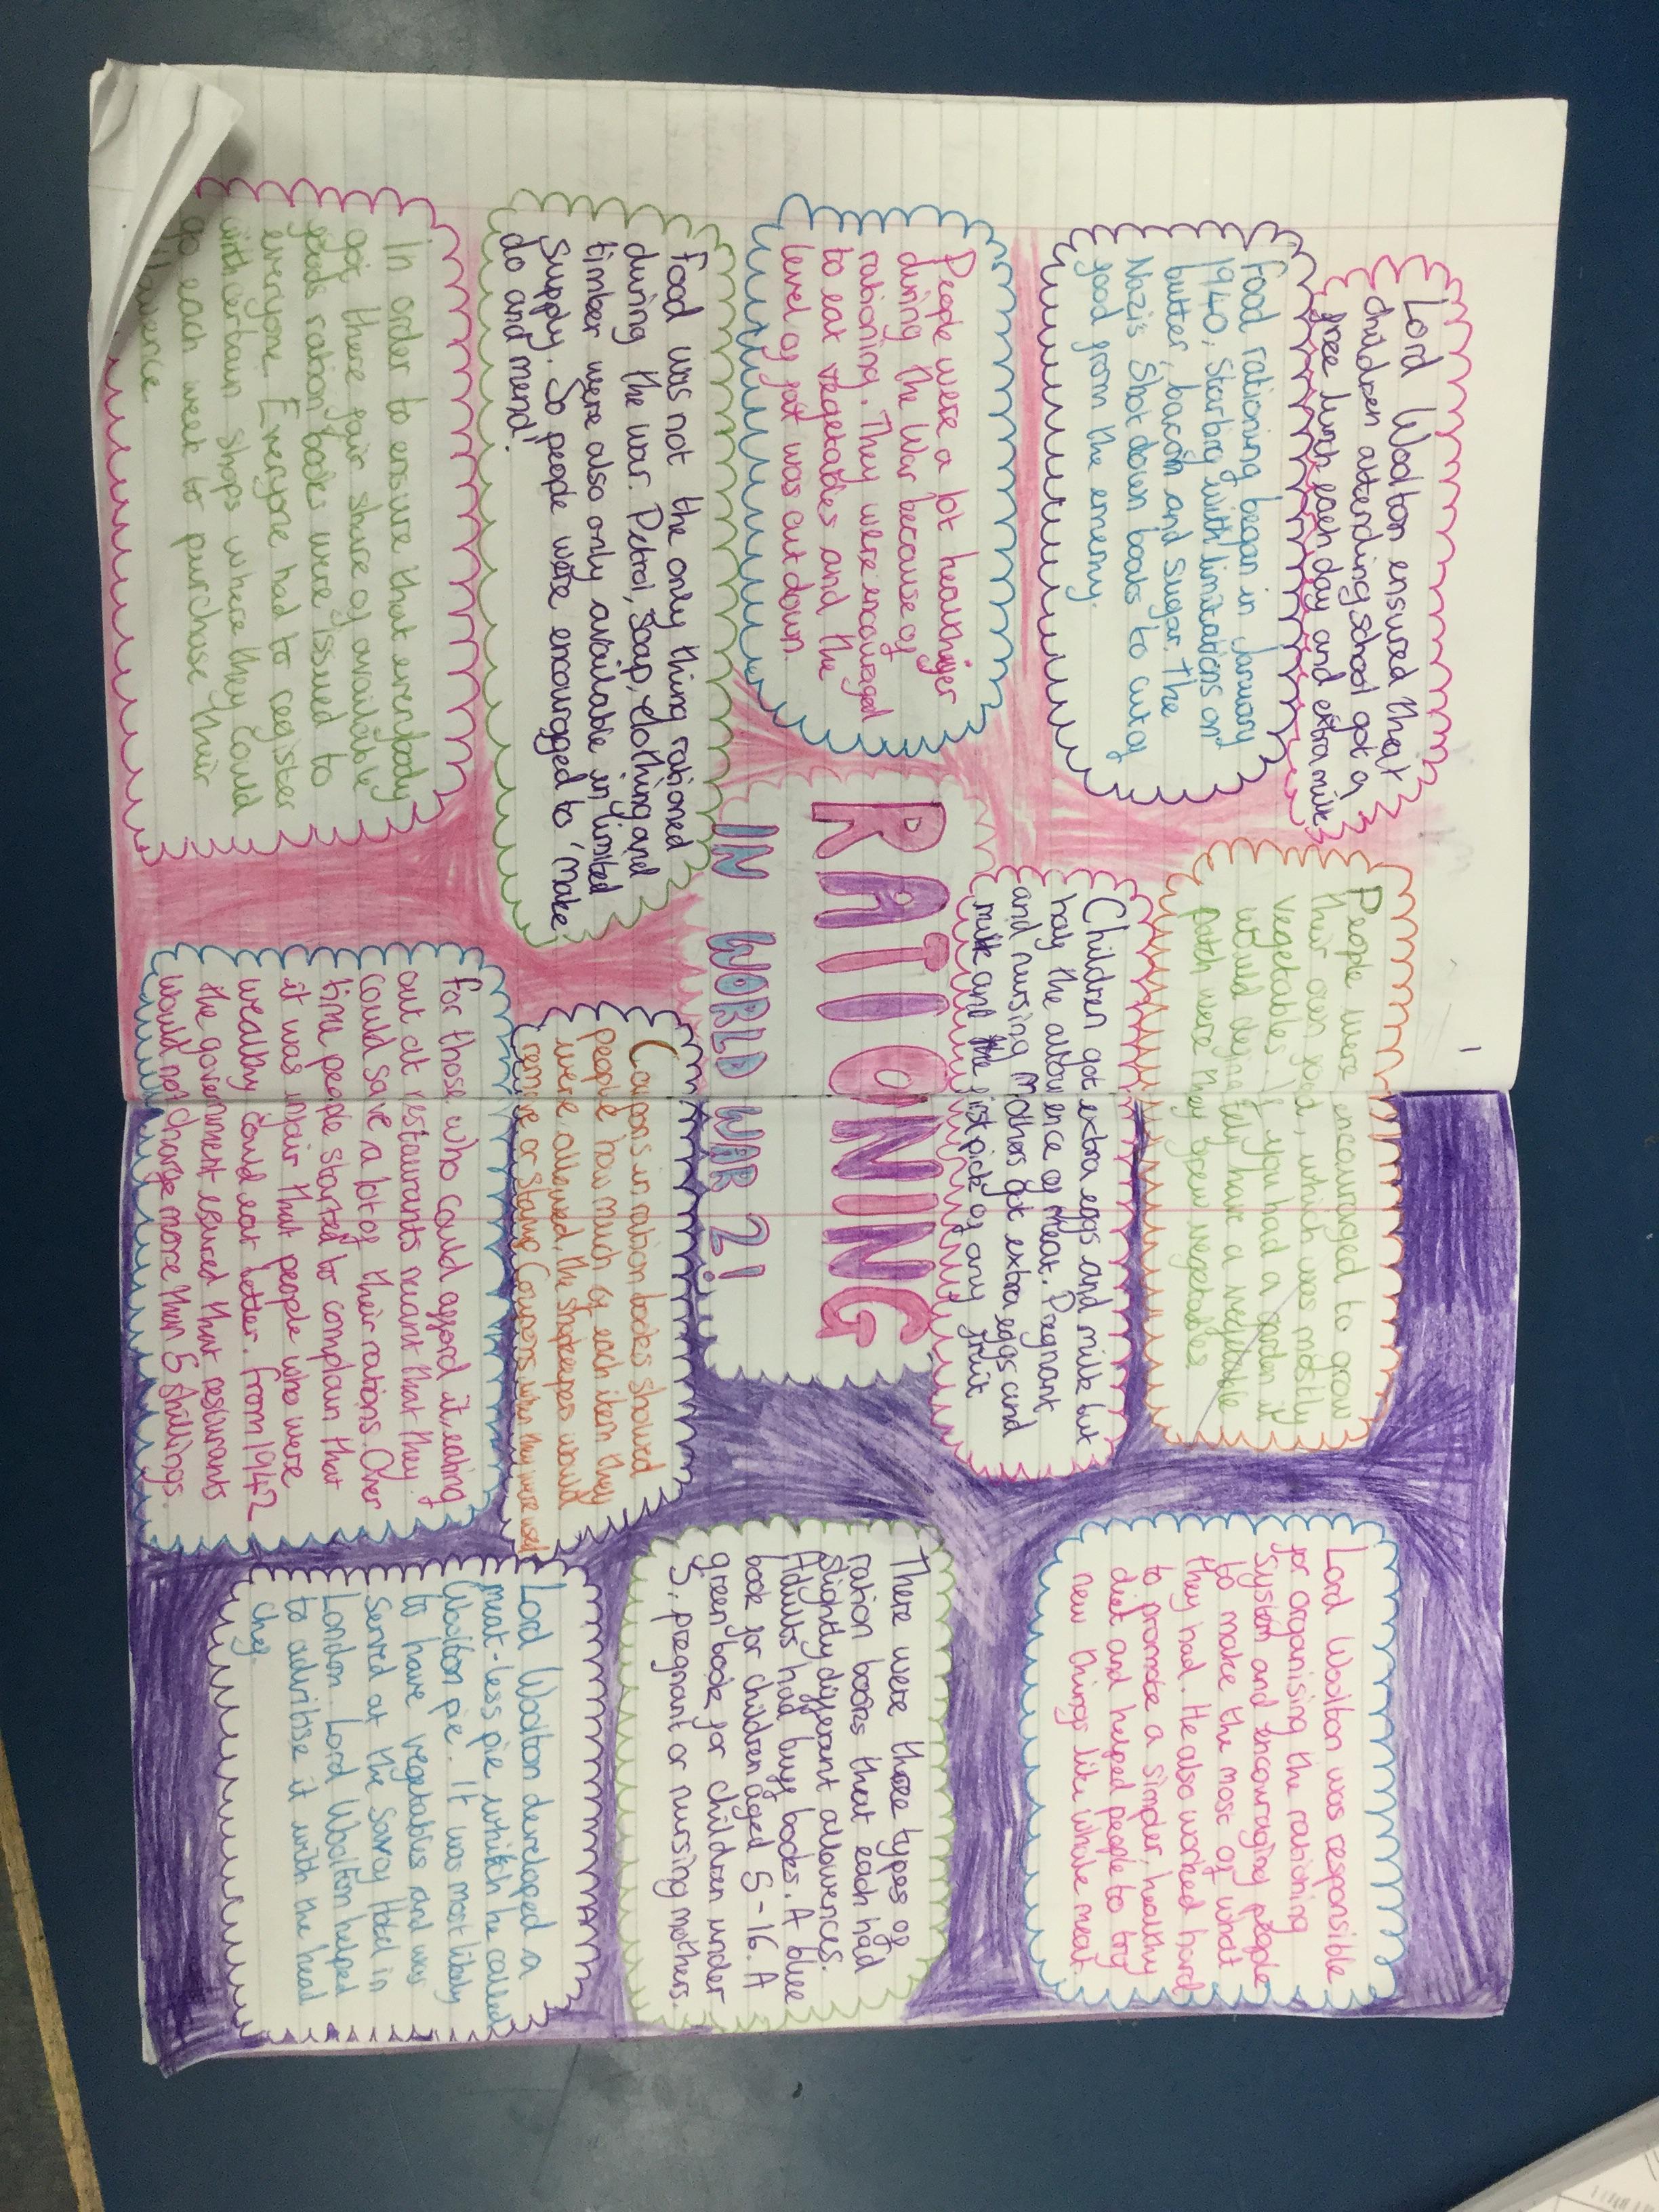 Lord Woolton ensured that
children attending school got a
free lunch each day and extra milk
Food rationing began in January
1940, starting with limitations on
butter, bacon and sugar. The
Nazi's shot down boats to cut of
food from the enemy.
People were a lot healthyer
during the War because of
rationing. They were encouraged
to eat vegetables and the
level of fat was cut down.
Food was not the only thing rationed
during the war. Petrol, Soap, clothing and
timber were also only available in limited
supply. So people were encouraged to 'Make
do and mend!'
In order to ensure that everybody
got there fair share of available
goods ration books were issued to
everyone. Everyone had to register
with certain shops where they could
go each week to purchase their
allowence.
People were encouraged to grow
their own food, which was mostly
vegetables. If you had a garden it
would definetely have a vegetable
patch were they grew vegetables
Children got extra eggs and milk but
half the allowence of meat. Pregnant
and nursing mothers got extra eggs and
milk and the first pick of any fruit
RATIONING
IN WORLD WAR 2!
Coupons in ration books showed
people how much of each item they
were allowed, the shopkeepers would
remove or stamp Coupons when they were used
for those who could afford it, eating
out at restaurants meant that they
could save a lot of their rations. Over
time people started to complain that
it was unfair that people who were
wealthy could eat better. From 1942
the government esured that resturants
would not charge more than 5 shillings.
Lord Woolton was responsible
for organising the rationing
System and encouraging people
to make the most of what
they had. He also worked hard
to promote a simpler, healthy
diet and helped people to try
new things like whale meat.
There were three types of
ration books that each had
slightly different allowences.
Adults had buff books. A blue
book for children aged 5-16. A
green book for children under
5, pregnant or nursing mothers.
Lord Woolton developed a
meat-less pie, whitch he called
Woolton pie. It was most likely
to have vegetables and was
Served at the Savoy Hotel in
London. Lord Woolton helped
to advitise it with the head
chef.